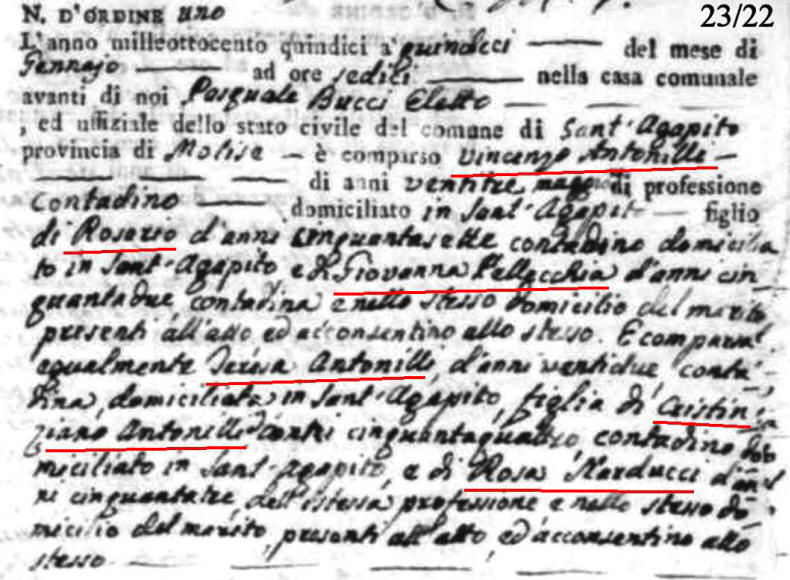 23/22
N. D'ORDINE uno
L'anno milleottocento quindici a' quindici del mese di
Gennajo ad ore sedici nella casa comunale
avanti di noi Pasquale Bucci Eletto
, ed uffiziale dello stato civile del comune di Sant'Agapito
provincia di Molise è comparso Vincenzo Antonilli
di anni ventitre di professione
contadino domiciliato in Sant'Agapito figlio
di Rosario d'anni cinquantasette contadino domicilia
to in Sant-Agapito e di Giovanna Pellecchia d'anni cin
quantadue contadina e nello stesso domicilio del marito
presenti all'atto ed acconsentino allo stesso. E comparsa
egualmente Teresa Antonilli, d'anni ventidue conta
dina, domiciliata in Sant-Agapito, figlia di Cristin
ziano Antonilli d'anni cinquantaquattro, contadino do
miciliato in Sant-Agapito, e di Rosa Narducci d'an
ni cinquantatre, dell'istessa professione e nello stesso do
micilio del marito, presenti all'atto, ed acconsentino allo
stesso